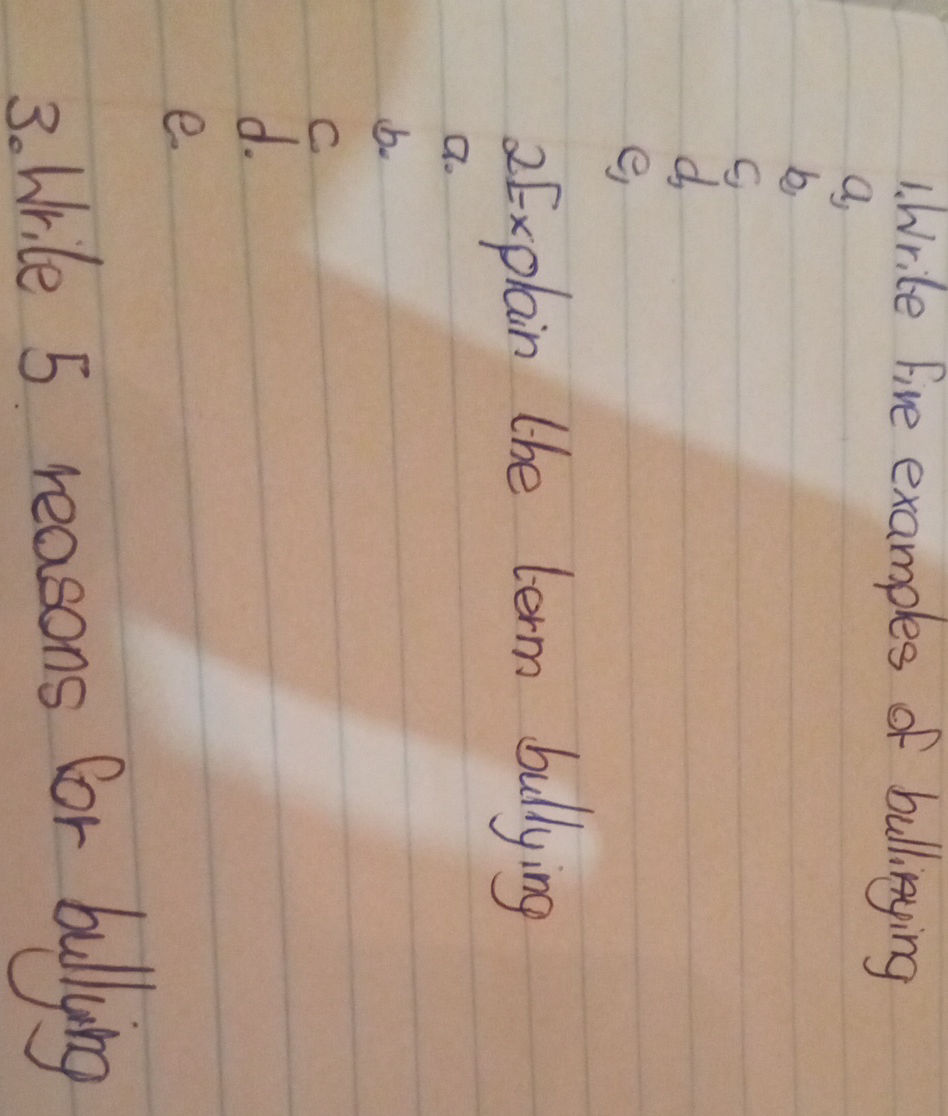 1. Write five examples of bullinying
a,
b,
c,
d,
e,
2 Explain the term bullying
a.
b.
c
d.
e.
3. Write 5 reasons for bullying